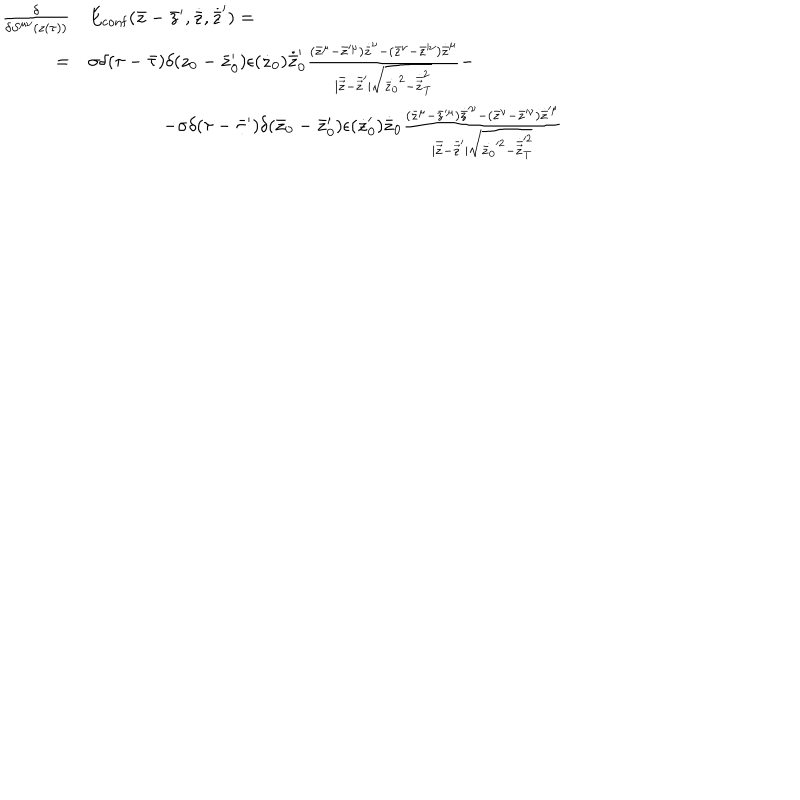 \frac{\delta}{\delta S^{\mu\nu}(z(\tau))} E_{conf}(\bar{z} - \bar{z}', \dot{\bar{z}}, \dot{\bar{z}}') =
= \sigma\delta(\tau - \bar{\tau})\delta(z_0 - \bar{z}'_0)\epsilon(\dot{z}_0)\dot{\bar{z}}'_0 \frac{(\bar{z}^\mu - \bar{z}'^\mu)\dot{\bar{z}}^\nu - (\bar{z}^\nu - \bar{z}'^\nu)\dot{\bar{z}}^\mu}{|\vec{\bar{z}} - \vec{\bar{z}}'|\sqrt{\dot{\bar{z}}_0^2 - \dot{\vec{\bar{z}}}_T^2}} -
-\sigma\delta(\tau - \bar{\tau}')\delta(\bar{z}_0 - \bar{z}'_0)\epsilon(\dot{z}'_0)\dot{\bar{z}}_0 \frac{(\bar{z}^\mu - \bar{z}'^\mu)\dot{\bar{z}}'^\nu - (\bar{z}^\nu - \bar{z}'^\nu)\dot{\bar{z}}'^\mu}{|\vec{\bar{z}} - \vec{\bar{z}}'|\sqrt{\dot{\bar{z}}_0'^2 - \dot{\vec{\bar{z}}}_T'^2}}